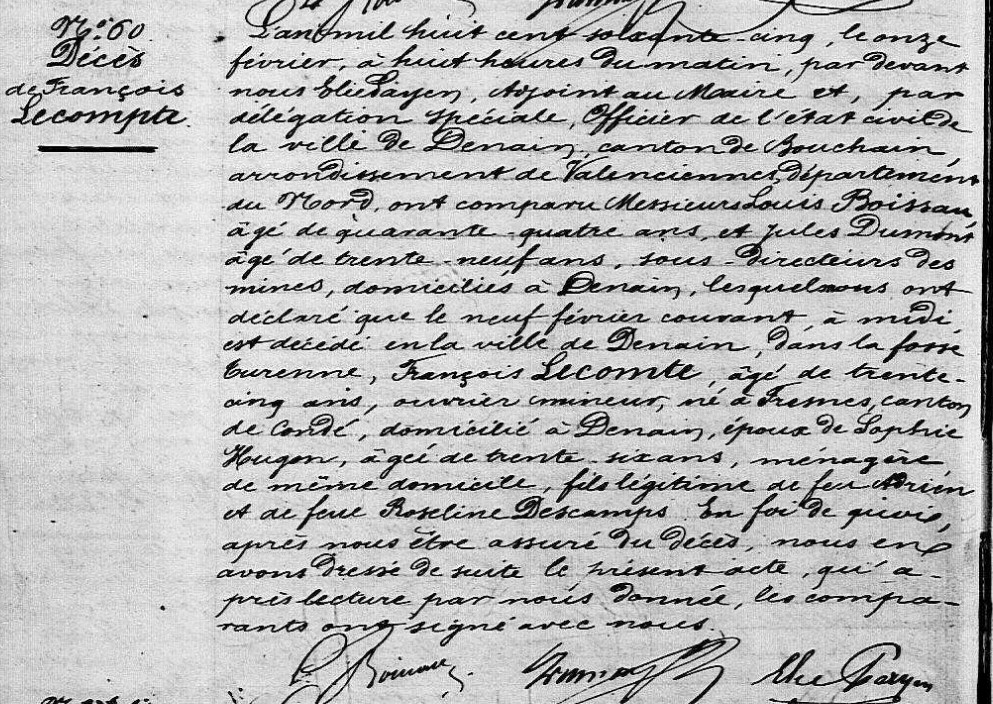 N.º 60
Décès
de François
Lecompte.
L'an mil huit cent soixante-cinq, le onze
février, à huit heures du matin, par devant
nous Elie Payen, Adjoint au Maire et, par
délégation spéciale, Officier de l'état civil de
la ville de Denain, canton de Bouchain,
arrondissement de Valenciennes, département
du Nord, ont comparu Messieurs Louis Boissau,
âgé de quarante-quatre ans, et Jules Dumont
âgé de trente-neuf ans, sous-directeurs des
mines, domiciliés à Denain, lesquels nous ont
déclaré que le neuf février courant, à midi,
est décédé en la ville de Denain, dans la fosse
Turenne, François Lecomte, âgé de trente-
cinq ans, ouvrier mineur, né à Fresnes, canton
de Condé, domicilié à Denain, époux de Sophie
Hugon, âgée de trente-six ans, ménagère,
de même domicile, fils légitime de feu Adrien
et de feue Roseline Descamps. En foi de quoi,
après nous être assuré du décès, nous en
avons dressé de suite le présent acte, qu'a-
près lecture par nous donnée, les compa-
rants ont signé avec nous.
Elie Payen